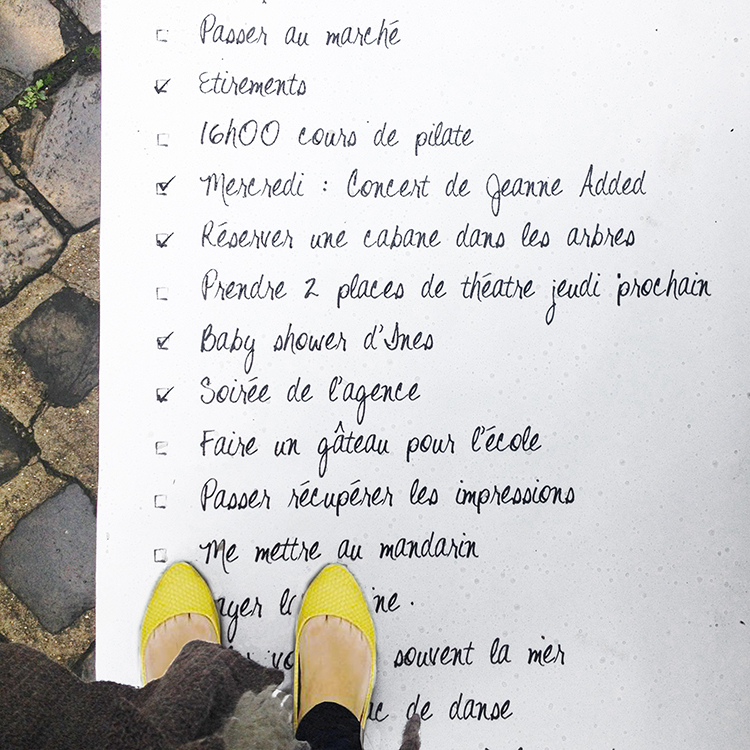 Passer au marché
Etirements
16h00 cours de pilate
Mercredi : Concert de Jeanne Added
Réserver une cabane dans les arbres
Prendre 2 places de théatre jeudi prochain
Baby shower d'Ines
Soirée de l'agence
Faire un gâteau pour l'école
Passer récupérer les impressions
Me mettre au mandarin
souvent la mer
de danse